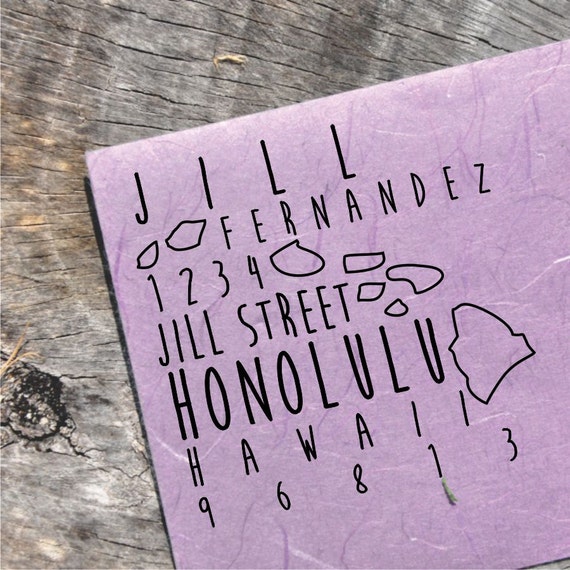 JILL
FERNANDEZ
1234
JILL STREET
HONOLULU
HAWAII
96813